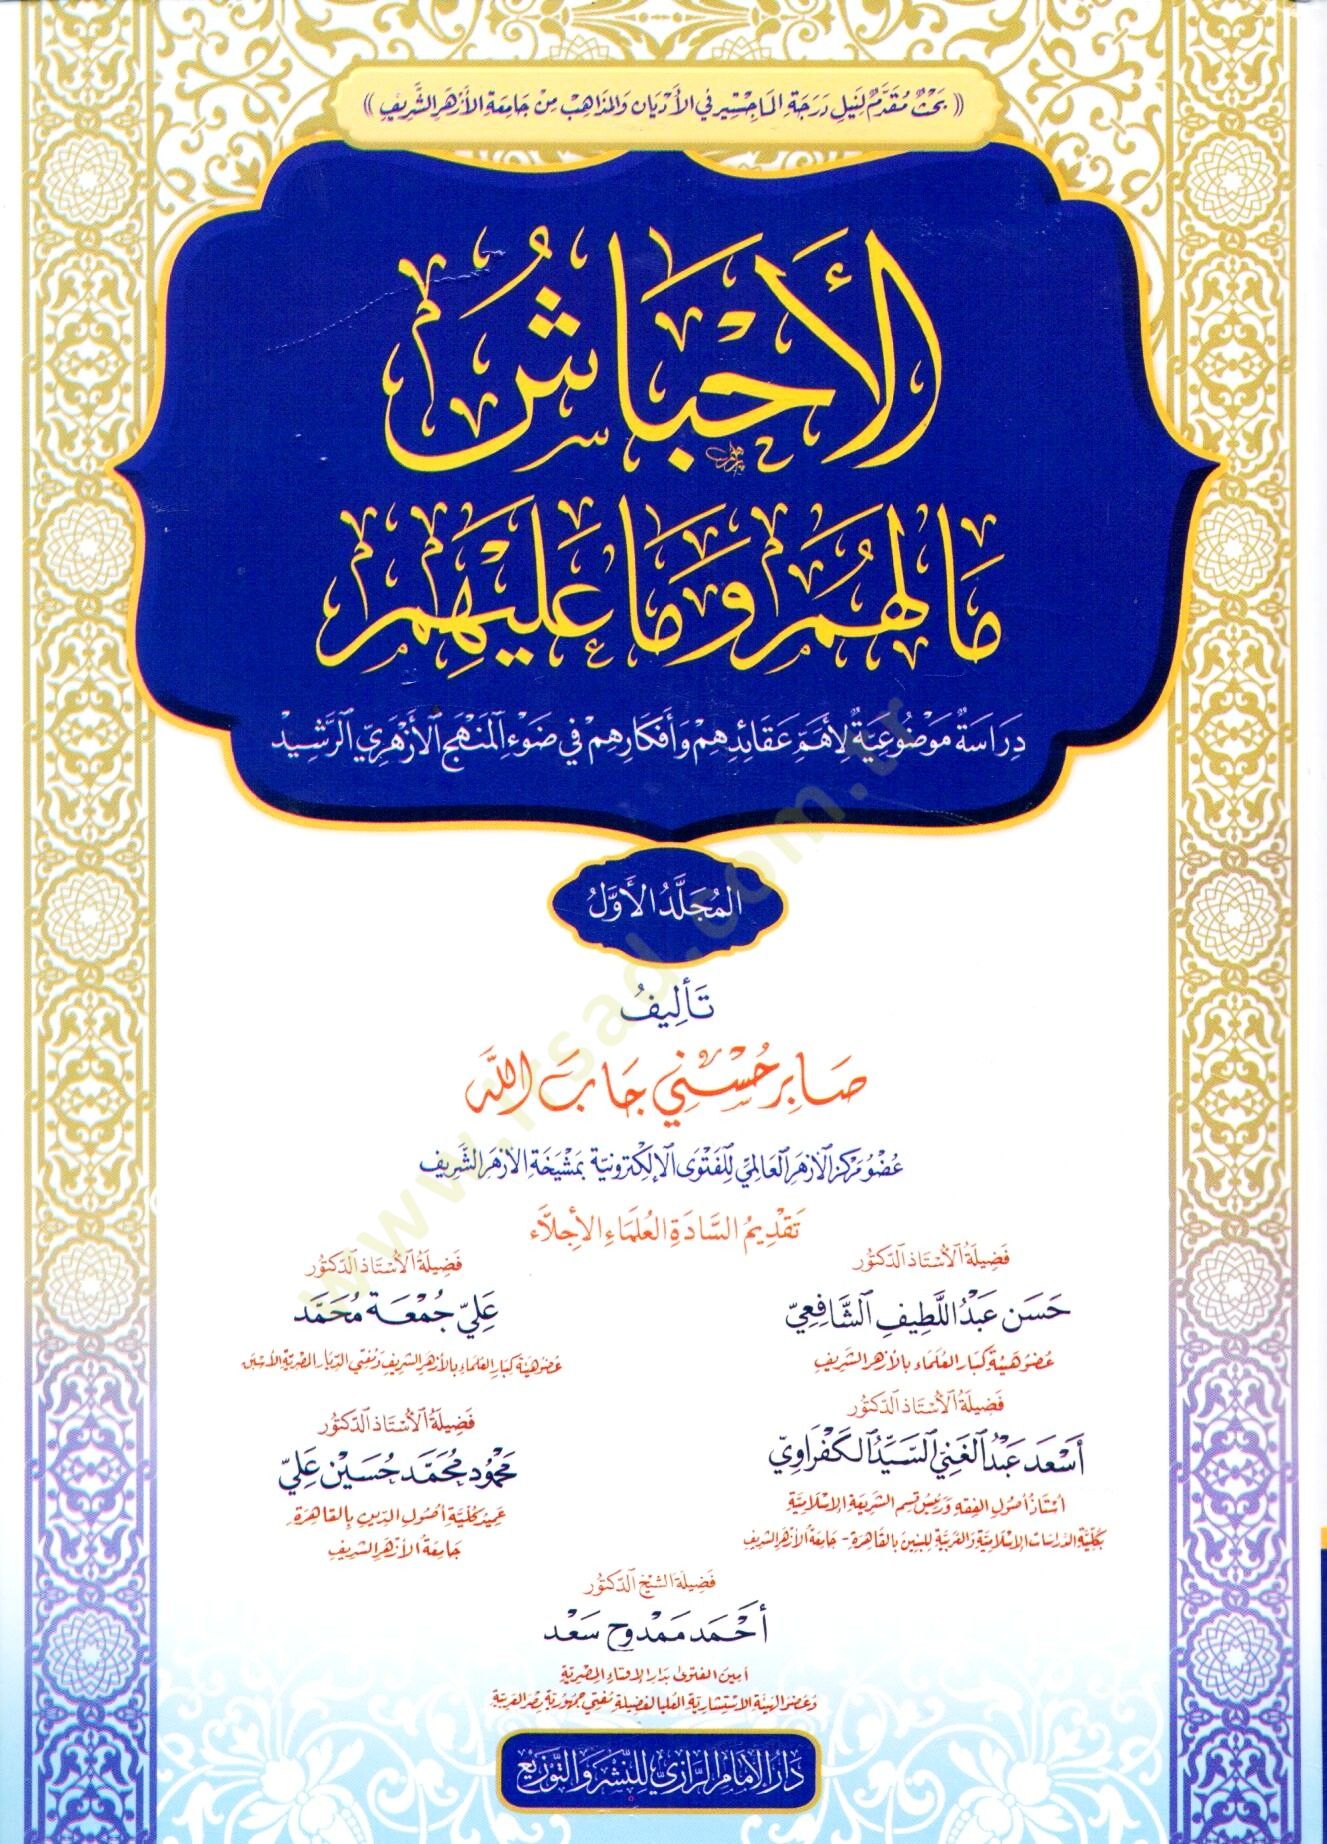 (( بَحْثٌ مُقَدَّمٌ لِنَيْلِ دَرَجَةِ المَاجِسْتِيرِ فِي الأَدْيَانِ وَالمَذَاهِبِ مِنْ جَامِعَةِ الأَزْهَرِ الشَّرِيفِ ))
الأَحْبَاشُ
مَا لَهُمْ وَمَا عَلَيْهِمْ
دِرَاسَةٌ مَوْضُوعِيَّةٌ لِأَهَمِّ عَقَائِدِهِمْ وَأَفْكَارِهِمْ فِي ضَوْءِ المَنْهَجِ الأَزْهَرِيِّ الرَّشِيدِ
المُجَلَّدُ الأَوَّلُ
تَأْلِيفُ
صَابِر حُسْنِي جَابَ الله
عُضْوُ مَرْكَزِ الأَزْهَرِ العَالَمِيِّ لِلْفَتْوَى الإِلِكْتِرُونِيَّةِ بِمَشْيَخَةِ الأَزْهَرِ الشَّرِيفِ
تَقْدِيمُ السَّادَةِ العُلَمَاءِ الأَجِلَّاءِ
فَضِيلَةُ الأُسْتَاذِ الدُّكْتُور
حَسَن عَبْدُ اللَّطِيفِ الشَّافِعِيّ
عُضْوُ هَيْئَةِ كِبَارِ العُلَمَاءِ بِالأَزْهَرِ الشَّرِيفِ
فَضِيلَةُ الأُسْتَاذِ الدُّكْتُور
عَلِيّ جُمْعَة مُحَمَّد
عُضْوُ هَيْئَةِ كِبَارِ العُلَمَاءِ بِالأَزْهَرِ الشَّرِيفِ وَمُفْتِي الدِّيَارِ المِصْرِيَّةِ الأَسْبَق
فَضِيلَةُ الأُسْتَاذِ الدُّكْتُور
أَسْعَد عَبْدُ الغَنِيِّ السَّيِّدُ الكَفْرَاوِيّ
أُسْتَاذُ أُصُولِ الفِقْهِ وَرَئِيسُ قِسْمِ الشَّرِيعَةِ الإِسْلَامِيَّةِ
بِكُلِّيَّةِ الدِّرَاسَاتِ الإِسْلَامِيَّةِ وَالعَرَبِيَّةِ لِلْبَنِينَ بِالقَاهِرَةِ - جَامِعَةُ الأَزْهَرِ الشَّرِيفِ
فَضِيلَةُ الأُسْتَاذِ الدُّكْتُور
مَحْمُود مُحَمَّد حُسَيْن عَلِيّ
عَمِيدُ كُلِّيَّةِ أُصُولِ الدِّينِ بِالقَاهِرَةِ
جَامِعَةُ الأَزْهَرِ الشَّرِيفِ
فَضِيلَةُ الشَّيْخِ الدُّكْتُور
أَحْمَد مَمْدُوح سَعْد
أَمِينُ الفَتْوَى بِدَارِ الإِفْتَاءِ المِصْرِيَّةِ
وَعُضْوُ الهَيْئَةِ الاِسْتِشَارِيَّةِ العُلْيَا لِفَضِيلَةِ مُفْتِي جُمْهُورِيَّةِ مِصْرَ العَرَبِيَّةِ
دَارُ الإِمَامِ الرَّازِيِّ لِلنَّشْرِ وَالتَّوْزِيعِ
www.irsad.com.tr